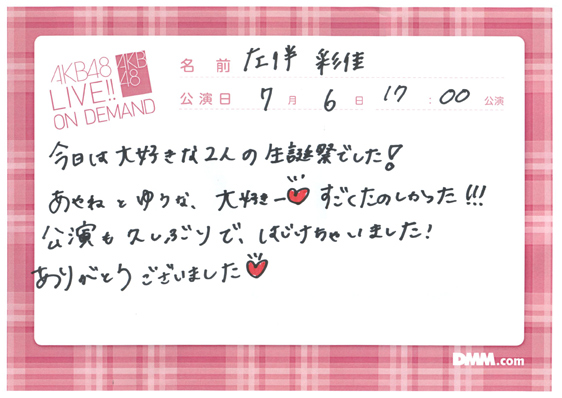 AKB48
LIVE!!
ON DEMAND
AKB
48
名 前 左伴 彩佳
公演日 7月 6日 17:00 公演
今日は大好きな2人の生誕祭でした!
あやねとゆりな、大好きー♥すごくたのしかった!!!
公演も久しぶりで、はじけちゃいました!
ありがとうございました♥
DMM.com